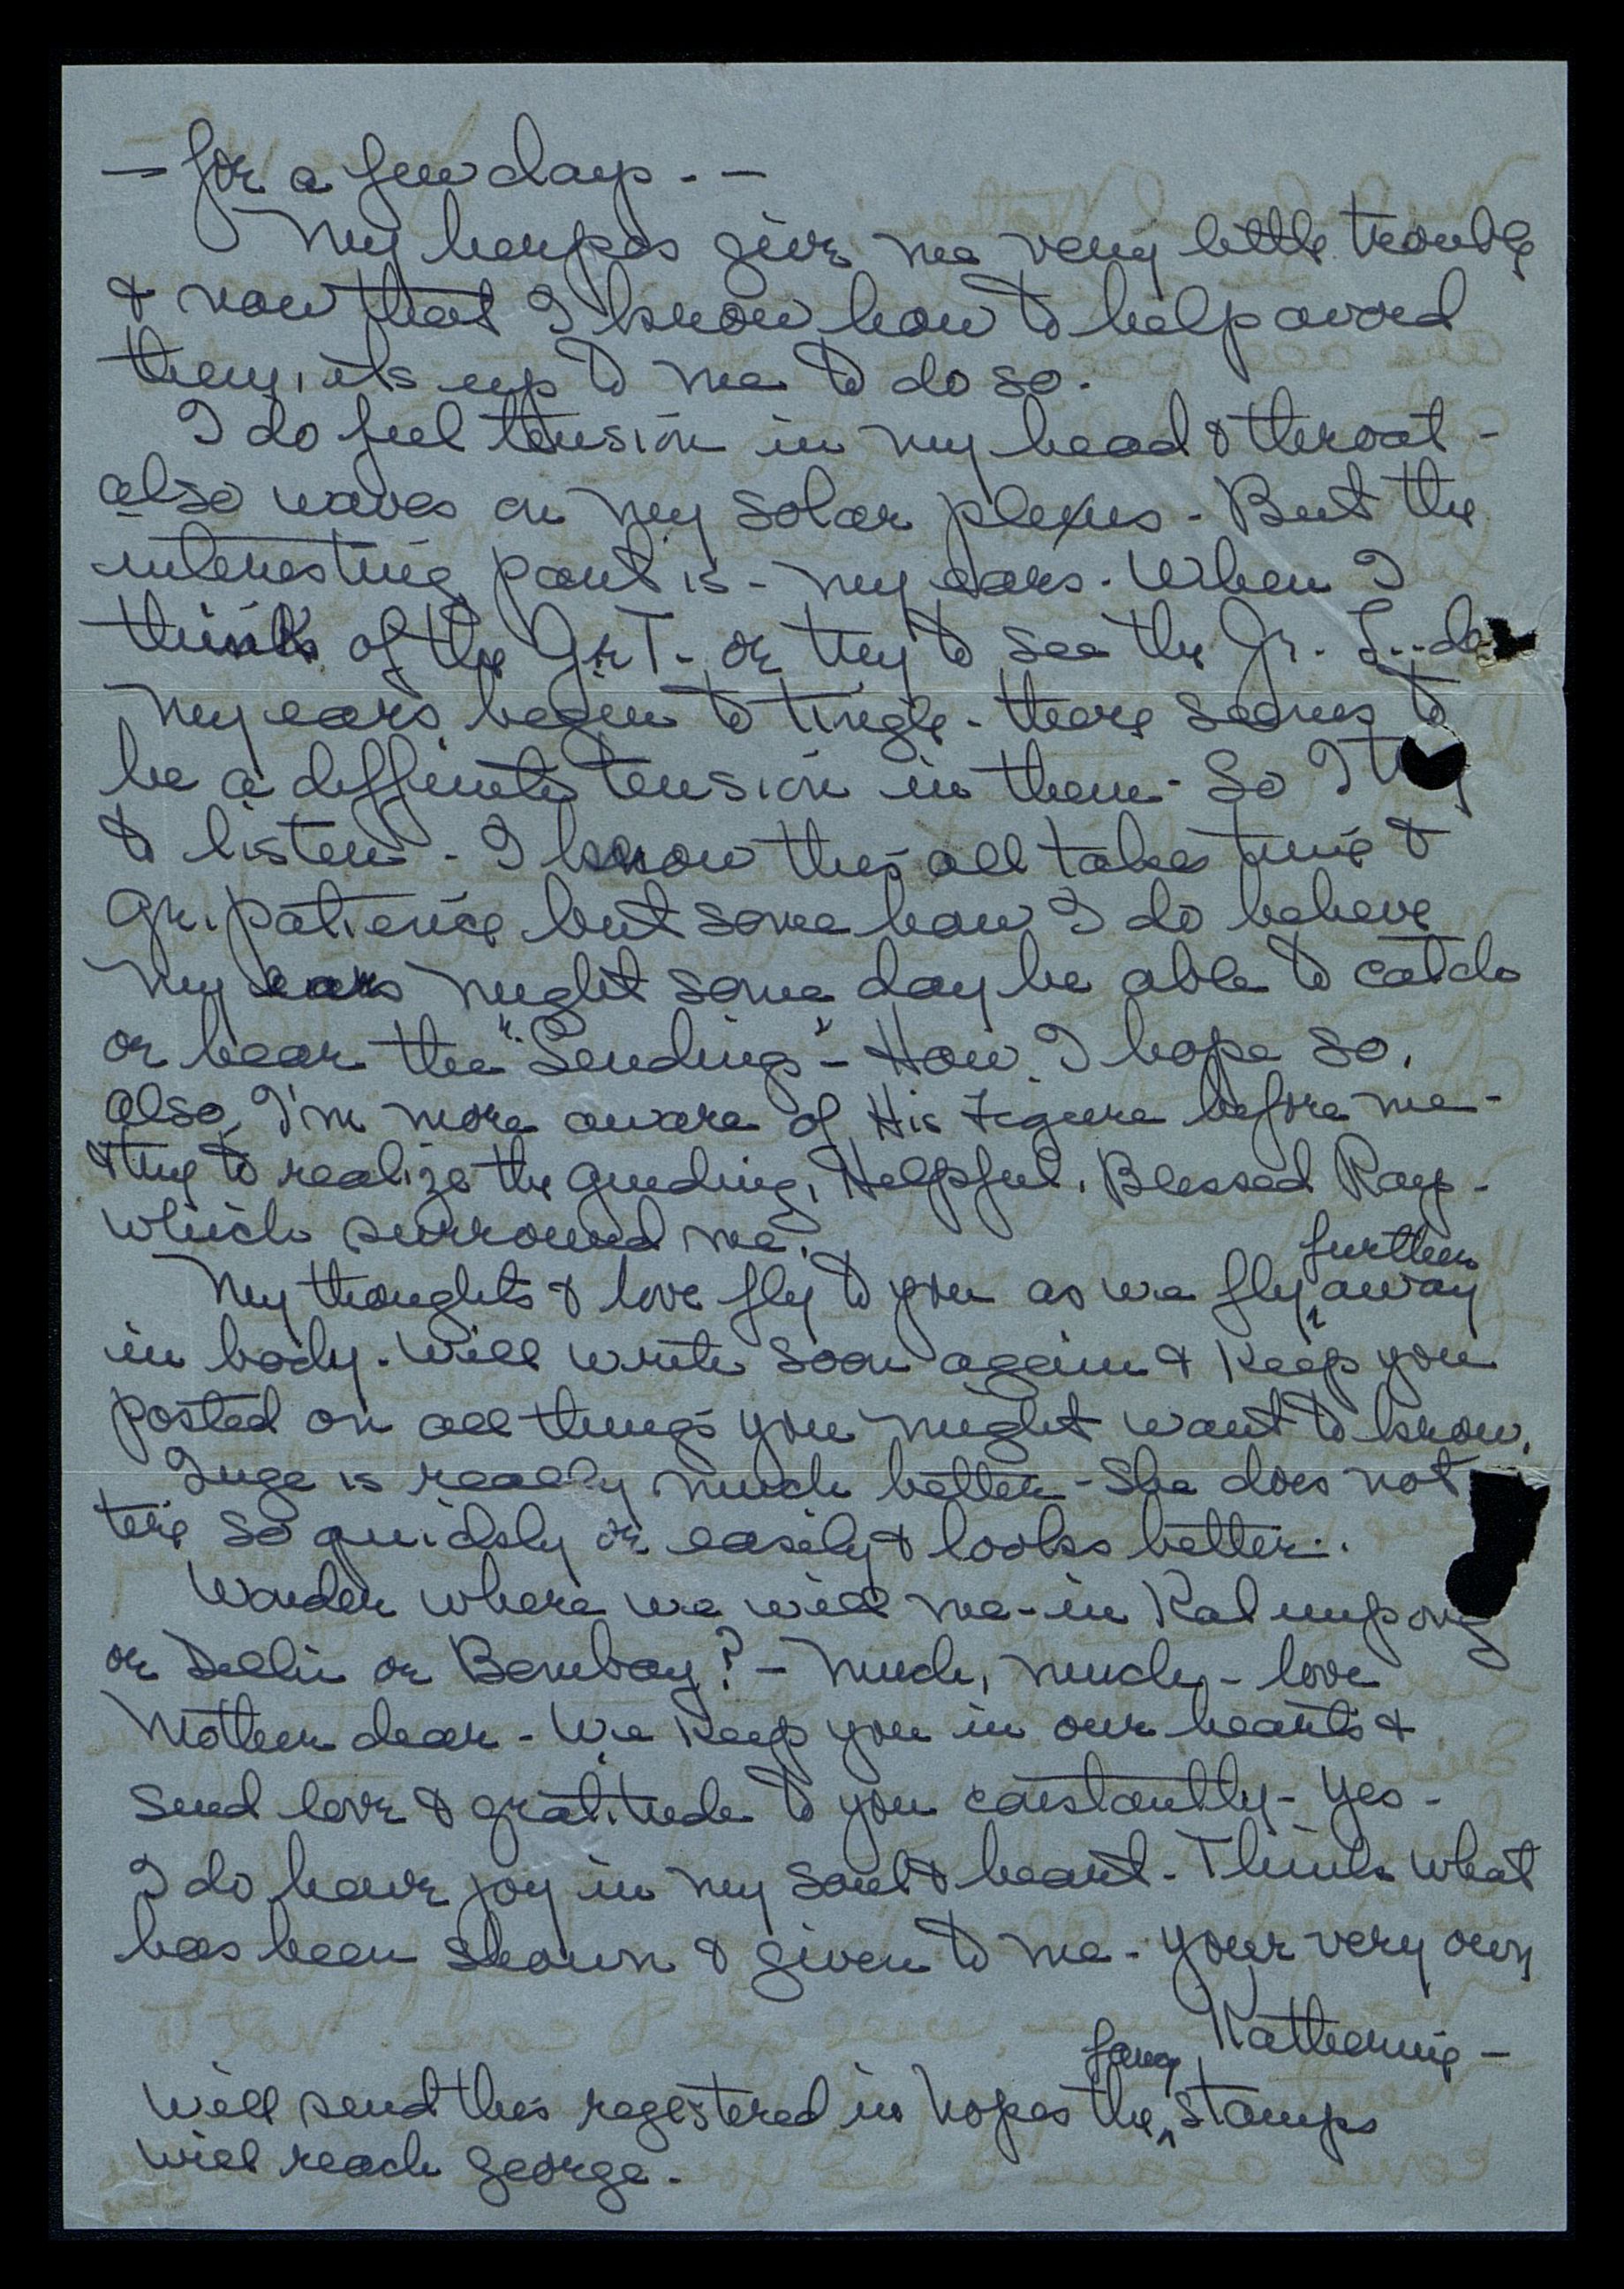 — for a few days. —
My herpes give me very little trouble
& now that I know how to help avoid
them, its up to me to do so.
I do feel tension in my head & throat -
also waves on my solar plexus - But the
interesting part is - my ears. When I
think of the Gr T - or try to see the Gr. L..d
my ears begin to tingle - there seems to
be a diffinite tension in them - So I try
to listen - I know this all takes time &
gr. patience but some how I do believe
my ears might some day be able to catch
or hear the "Sending" - How I hope so.
also, I'm more aware of His Figure before me -
& try to realize the guiding, Helpful, Blessed Rays -
which surround me.
My thoughts & love fly to you as we fly further away
in body. Will write soon again & keep you
posted on all things you might want to know.
Inge is really much better - She does not
tire so quickly or easily & looks better.
Wonder where we will me - in Kalimpong
or Delhi or Bombay? - Much, much - love
Mother dear - We keep you in our hearts &
send love & gratitude to you constantly - Yes -
I do have joy in my soul & heart - Think what
has been shown & given to me - your very own
Katherine —
Will send this registered in hopes the stamps
will reach George.